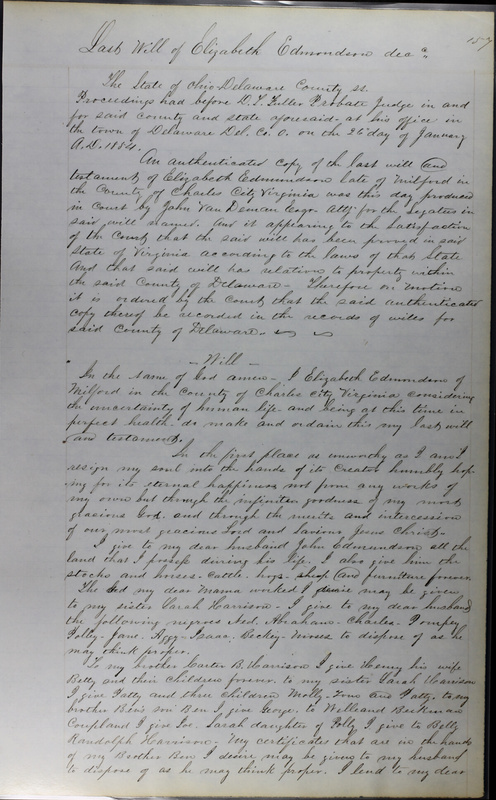 157
Last Will of Elizabeth Edmondson dec'd
The State of Ohio Delaware County ss.
Proceedings had before D. T. Fuller Probate Judge in and
for said county and state aforesaid at his office in
the town of Delaware Del. Co. O. on the 26" day of January
A.D. 1884.
An authenticated copy of the last will and
testament of Elizabeth Edmundson late of Milford in
the County of Charles City Virginia was this day produced
in Court by John Van Deman Esqr. Atty. for the Legatees in
said will named. And it appearing to the satisfaction
of the Court that the said will has been proved in said
State of Virginia according to the laws of that State
And that said will has relation to property within
the said County of Delaware - Therefore on motion
it is ordered by the Court that the said authenticated
copy thereof be recorded in the records of wills for
said County of Delaware.
- Will -
In the Name of God amen. I Elizabeth Edmondson of
Milford in the County of Charles City Virginia considering
the uncertainty of human life and being at this time in
perfect health do make and ordain this my last will
and testament.
In the first place as unworthy as I am I
resign my soul into the hands of its Creator humbly hop-
ing for its eternal happiness not from any works of
my own but through the infinite goodness of my most
gracious God. and through the merits and intercession
of our most gracious Lord and Saviour Jesus Christ.
I give to my dear husband John Edmundson all the
land that I possess during his life. I also give him the
stocks and horses. cattle. hogs. sheep and furniture forever.
The bed my dear Mama worked I desire may be given
to my sister Sarah Harrison. I give to my dear husband
the following negroes Ned. Abraham. Charles. Pompey
Polley. Jane. Aggy. Isaac. Beckey. Moses to dispose of as he
may think proper.
To my brother Carter B. Harrison I give Henry his wife
Betty and their children forever. to my sister Sarah Harrison
I give Patty and three children Molly. and Patty. to my
brother Ben's son Ben I give George. to Beekman
Coupland I give Joe. Sarah daughter of Polly I give to Betty
Randolph Harrison. My certificates that are in the hands
of my Brother Ben I desire may be given to my husband
to dispose of as he may think proper. I lend to my dear